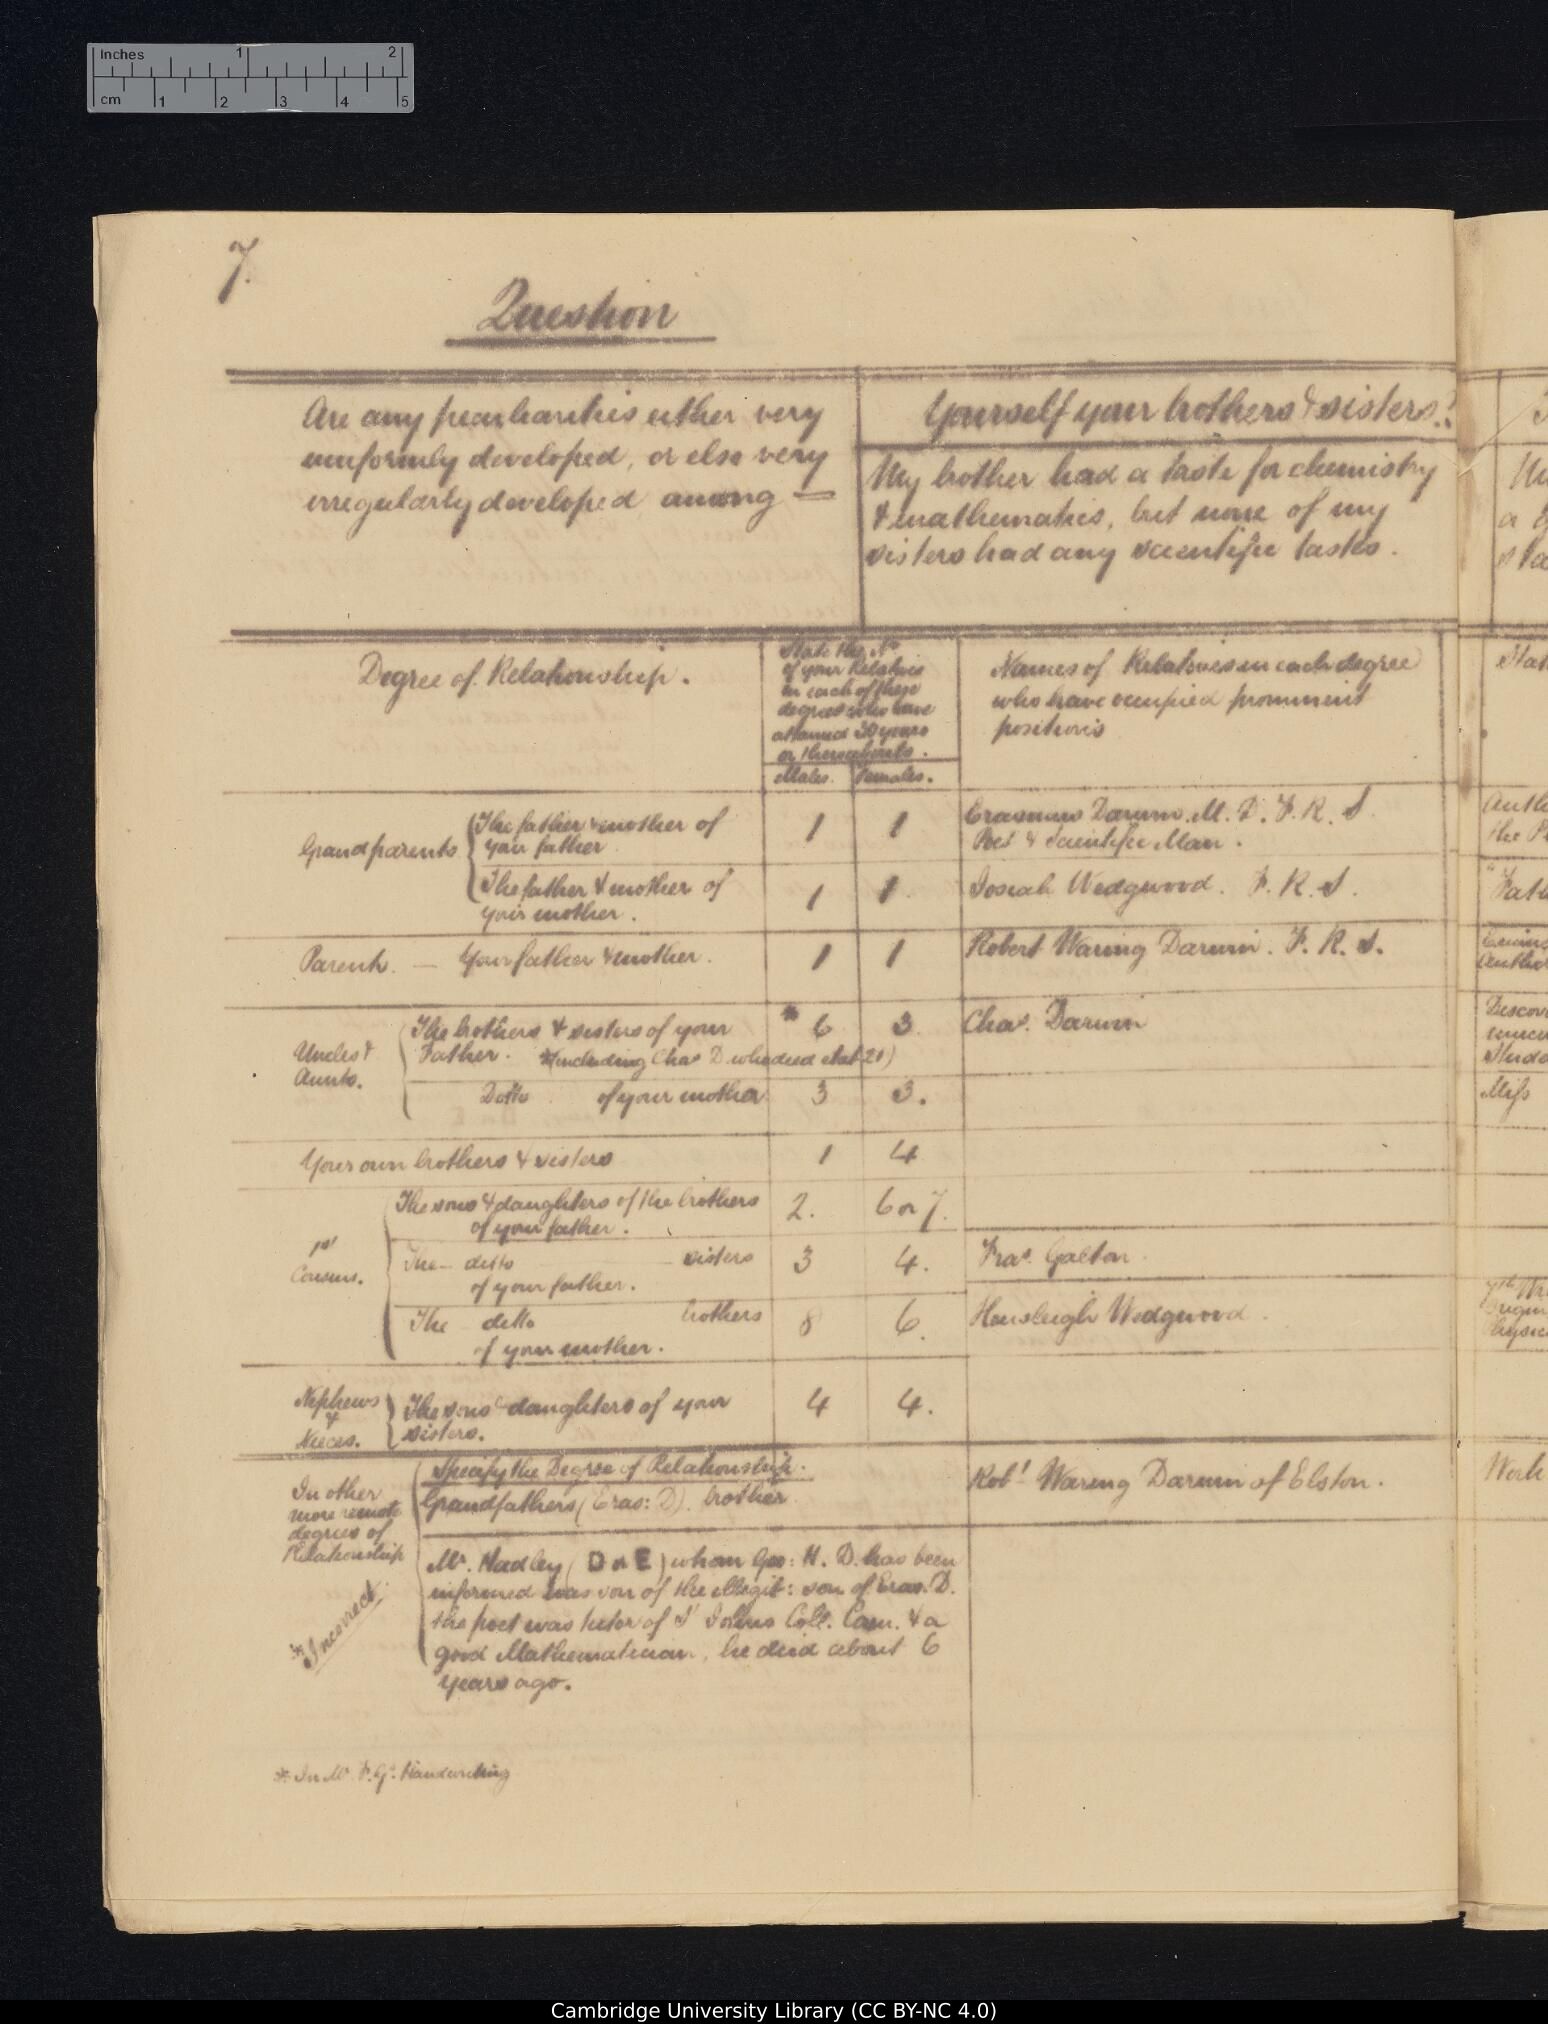 Inches 1 2
cm 1 2 3 4 5
7.
Question
Are any peculiarities either very
uniformly developed, or else very
irregularly developed among —
Yourself your brothers & sisters?
My brother had a taste for chemistry
& mathematics, but none of my
sisters had any scientific tastes.
Degree of Relationship.
State the No
of your Relatives
in each of these
degrees who have
attained 30 years
or thereabouts.
Males. Females.
Names of Relatives in each degree
who have occupied prominent
positions
Stat
Grandparents
The father & mother of
your father
1 1
Erasmus Darwin. M. D. F. R. S.
Poet & Scientific Man.
The father & mother of
your mother.
1 1
Josiah Wedgwood. F. R. S.
Parents. — Your father & mother.
1 1
Robert Waring Darwin. F. R. S.
Uncles &
Aunts.
The brothers & sisters of your
Father. *(including Chas D who died etat 21)
* 6 3
Chas. Darwin
Ditto of your mother
3 3.
Miss
Your own brothers & sisters
1 4
1st
Cousins.
The sons & daughters of the brothers
of your father.
2. 6 or 7.
The — ditto sisters
of your father.
3 4.
Fras. Galton
The ditto brothers
of your mother.
8 6.
Hensleigh Wedgwood.
Nephews
&
Nieces.
The sons & daughters of your
sisters.
4 4.
In other
more remote
degrees of
Relationship
Specify the Degree of Relationship.
Grandfathers (Eras: D). brother
Robt Waring Darwin of Elston.
Work
Mr. Hadley (D or E) whom Geo: H. D. has been
informed was son of the illegit: son of Eras. D.
the poet was tutor of St Johns Coll. Cam. & a
good Mathematician, he died about 6
years ago.
*Incorrect.
* In Mr F. G's Handwriting
Cambridge University Library (CC BY-NC 4.0)